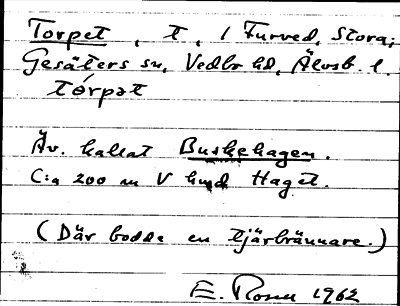 Torpet, t, i Furved, Stora;
Gesäters sn, Vedbo hd, Älvsb. l.
tórpət
Äv. kallat Buskehagen.
C:a 200 m V hmd Haget.
(Där bodde en tjärbrännare.)
E. Rosen 1962